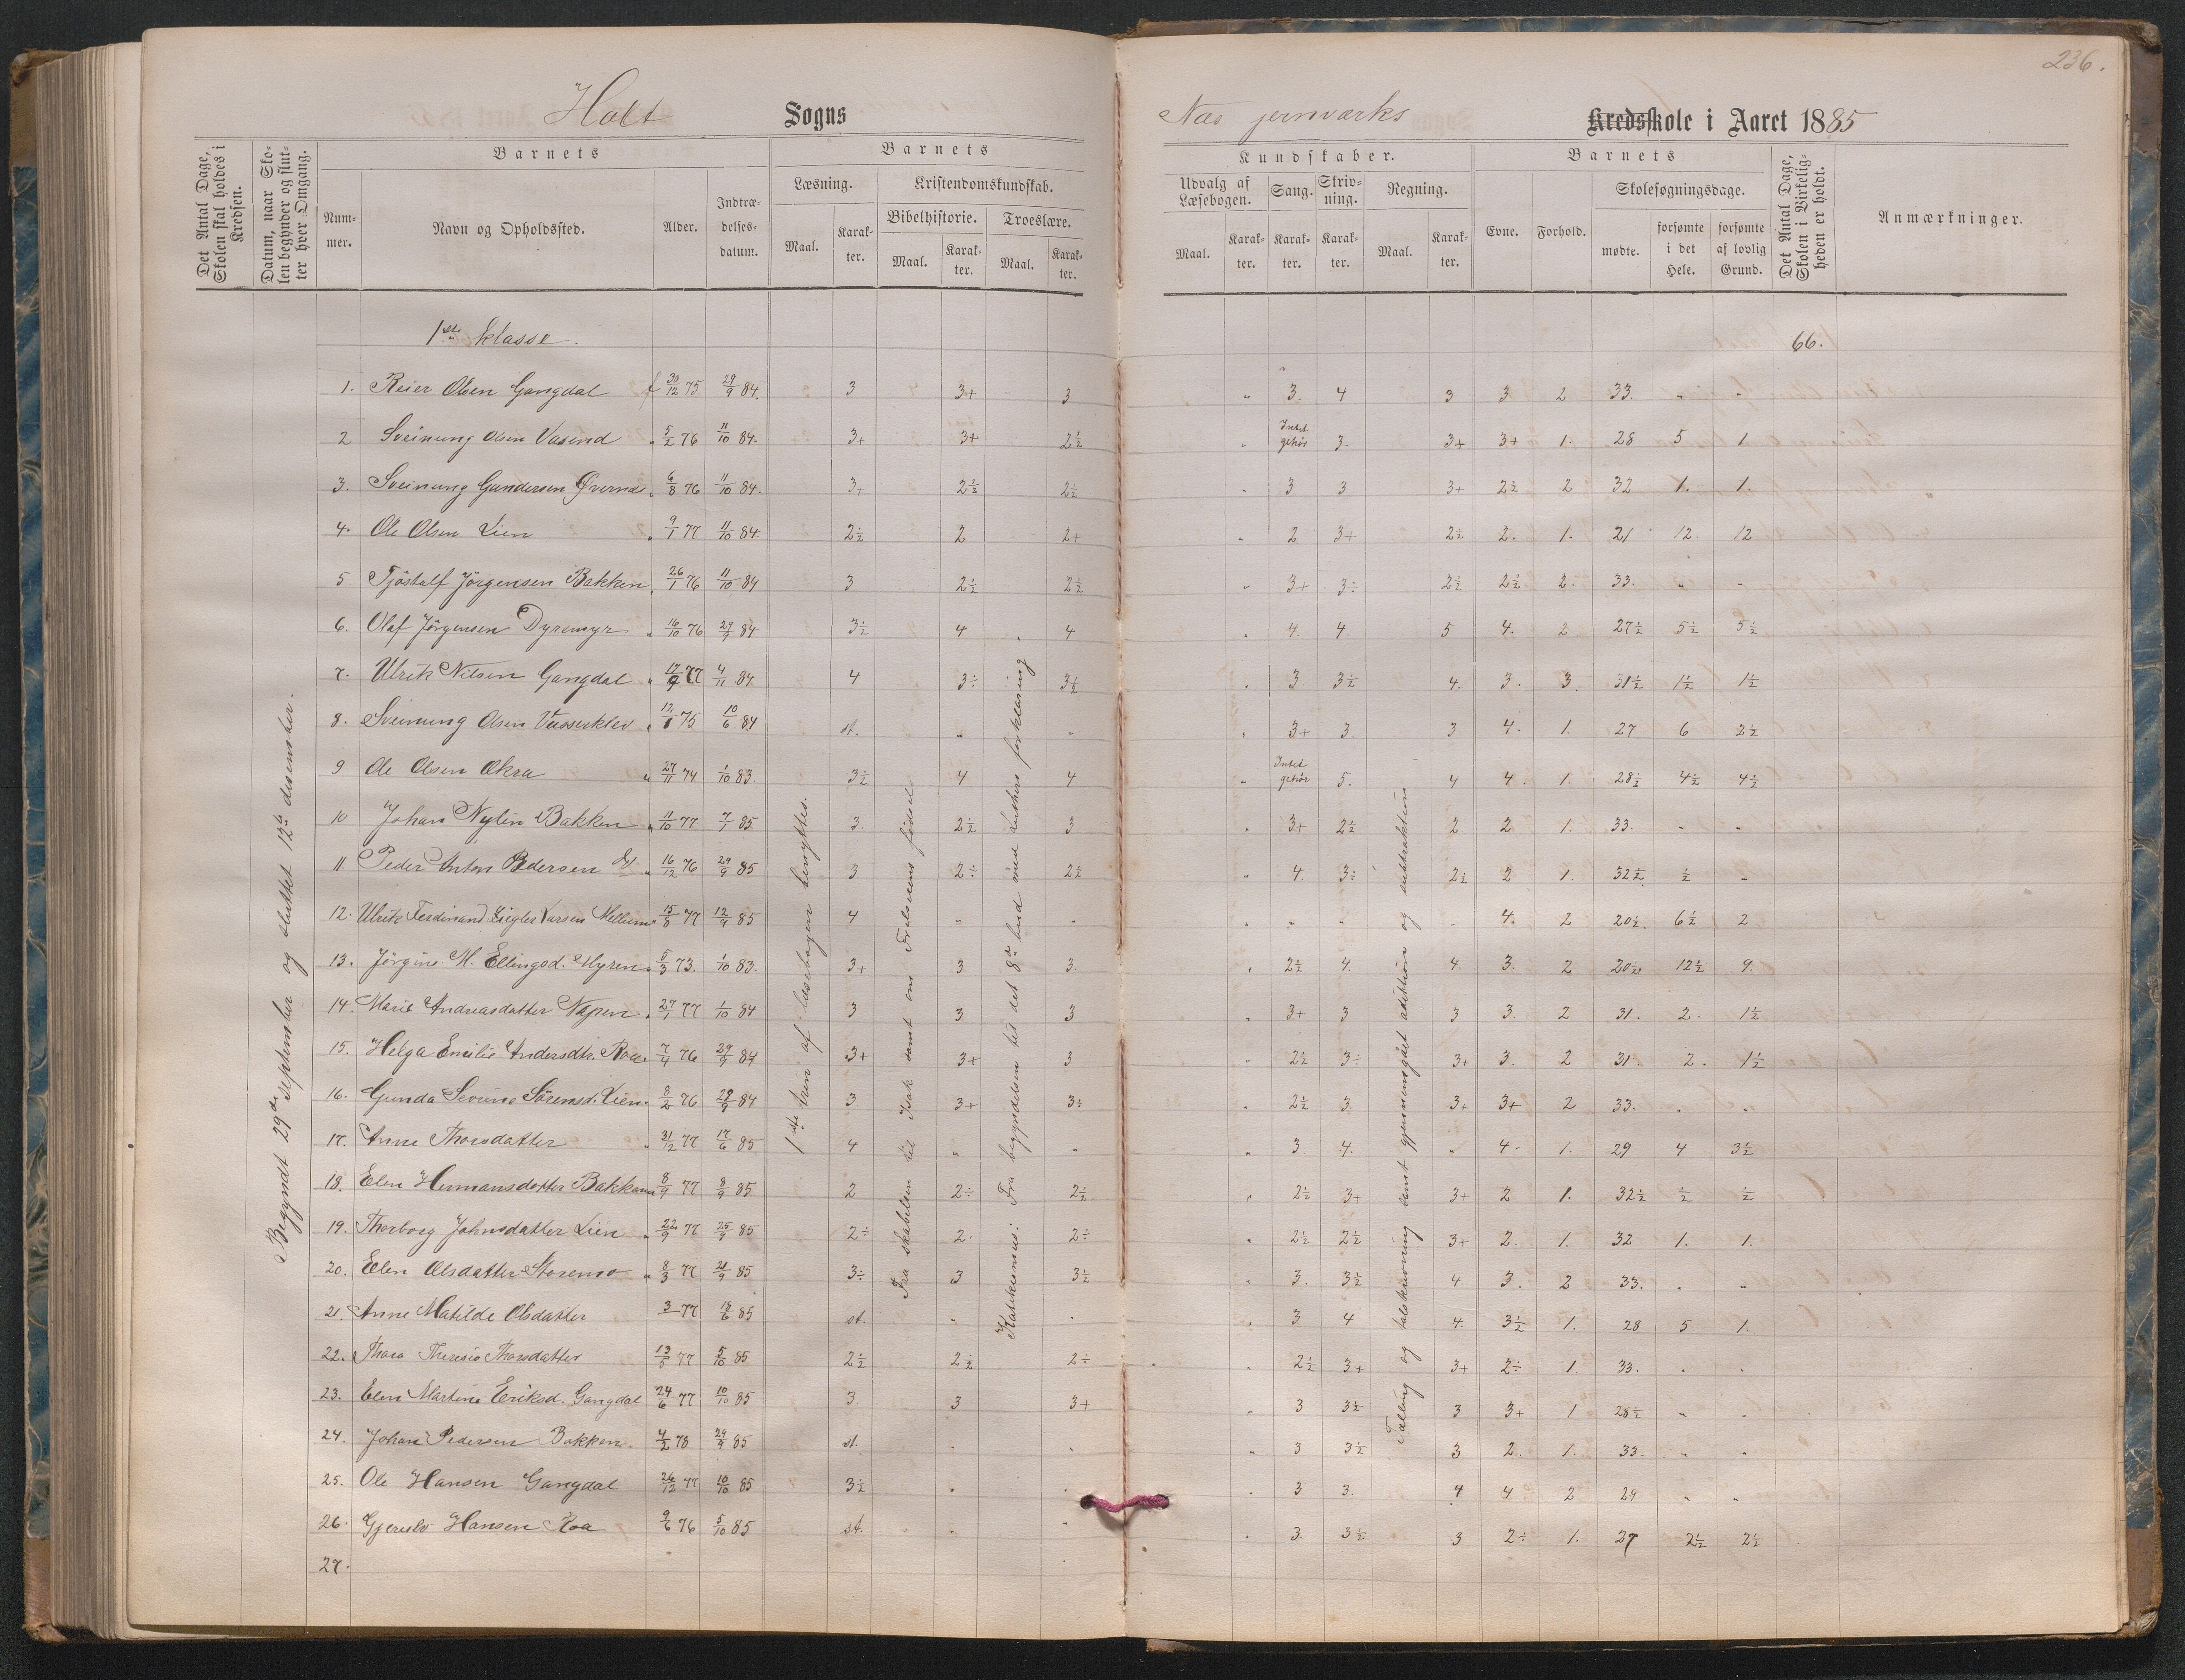 236.
Holt Sogns
Næs jernværks Kredsskole i Aaret 1885
Det Antal Dage, Skolen skal holdes i Kredsen.
Datum, naar Skolen begynder og slutter hver Omgang.
Barnets
Nummer.
Navn og Opholdssted.
Alder.
Indtrædelsesdatum.
Barnets
Læsning.
Maal.
Karakter.
Kristendomskundskab.
Bibelhistorie.
Maal.
Karakter.
Troeslære.
Maal.
Karakter.
Kundskaber.
Udvalg af Læsebogen.
Maal.
Karakter.
Sang.
Karakter.
Skrivning.
Karakter.
Regning.
Maal.
Karakter.
Barnets
Evne.
Forhold.
Skolesøgningsdage.
mødte.
forsømte i det Hele.
forsømte af lovlig Grund.
Det Antal Dage, Skolen i Virkeligheden er holdt.
Anmærkninger.
1ste klasse.
66.
Begyndt 29de september og sluttet 12te desember.
1ste trin af læsebogen benyttes.
Fra skabelsen til Isak samt om Frelserens fødsel
Katekismus: Fra begyndelsen til det 8de bud med Luthers forklaring
Talling og talskrivning samt gjennemgået addition og subtraktion
1. Reier Olsen Gangdal f 30/12 75 29/9 84. 3 3+ 3 " 3. 4 3 3 2 33. " "
2 Sveinung Olsen Vasend " 5/2 76 11/10 84. 3+ 3+ 2½ " Intet gehør 3. 3+ 3+ 1. 28 5 1
3. Sveinung Gundersen " 6/8 76 11/10 84. 3+ 2½ 2½ " 3 3 3+ 2½ 2 32 1. 1.
4. Ole Olsen Lien " 9/1 77 11/10 84. 2½ 2 2+ " 2 3+ 2½ 2. 1. 21 12. 12
5 Tjøstolf Jörgensen Bakken " 26/1 76 11/10 84 3 2½ 2½ " 3+ 3÷ 2½ 2½ 2. 33. " "
6. Olaf Jörgensen Dyremyr " 16/10 76 29/9 84 3½ 4 4 " 4. 4. 5 4. 2 27½ 5½ 5½
7. Ulrik Nilsen Gangdal " 17/9 77 4/11 84. 4 3÷ 3½ " 3. 3½ 4. 3. 3. 31½ 1½ 1½
8. Sveinung Olsen " 12/8 75 10/6 84 st. " " " 3+ 3. 3 4. 1. 27 6 2½
9 Ole Olsen Okra " 27/11 74 1/10 83. 3½ 4 4 " Intet gehør 5. 4 4. 1. 28½ 4½ 4½
10 Johan Nylin Bakken " 11/10 77 7/1 85 3. 2½ 3 " 3+ 2½ 2 2 1. 33. " "
11. Peder Anton Pedersen " 16/12 76 29/9 85 3 2÷ 2½ " 4. 3÷ 2½ 2 1. 32½ ½ "
12. Ulrik Ferdinand Larsen Mellum " 15/8 77 12/9 85 4 " " " " " " 4. 2 20½ 6½ 2
13. Jörgine M. Ellingsd. Myren " 5/3 73. 1/10 83. 3+ 3 3 " 2½ 4. 4. 3. 2 20½ 12½ 9.
14. Marie Andreasdatter " 27/1 77 1/10 84 3 3 3 " 3+ 3 3 3. 2 31. 2. 1½
15. Helga Emilie Andersdtr. Roa " 7/4 76 29/9 84 3+ 3+ 3 " 2½ 3÷ 3+ 3. 2 31. 2. 1½
16. Gunda Severine Sörensd. Lien " 8/2 76 29/9 84 3 3+ 3÷ " 2½ 3. 3+ 3+ 2 33. " "
17. Anne Thorsdatter " 31/12 77 17/6 85 4 " " " 3 4. " 4. 1. 29 4 3½
18. Elen Hermansdatter Bakkane 8/9 77 8/9 85 2 2÷ 2½ " 2½ 3+ 3+ 2 1. 32½ ½ ½
19. Thorborg Johnsdatter Lien " 22/9 77 25/9 85 2÷ 2. 2÷ " 2½ 2½ 3+ 2. 1. 32 1. 1.
20. Elen Olsdatter Storemo " 8/3 77 21/9 85 3÷ 3 3½ " 3. 3½ 4 3. 2 33. " "
21. Anne Matilde Olsdatter 3 77 18/6 85 st. " " " 3 4 4. 3½ 1. 28 5 1
22. Thora Theresie Thorsdatter 13/5 77 5/10 85 2½ 2½ 2÷ " 2½ 3+ 3+ 2÷ 1 33. " "
23. Elen Martine Eriksd. Gangdal 24/6 77 10/10 85 3 3 3+ " 3 3½ 3 3+ 1 28½ " "
24. Johan Pedersen Bakken. 4/2 78 29/9 85 st. " " " 3 3½ 3 2. 1. 33. " "
25. Ole Hansen Gangdal 26/12 77 10/10 85 3½ " " " 3 3. 4 4 2 29 " "
26. Hansen Roa 9/6 76 5/10 85 st. " " " 3. 3½ 3 2÷ 1. 27 2½ 2½
27.